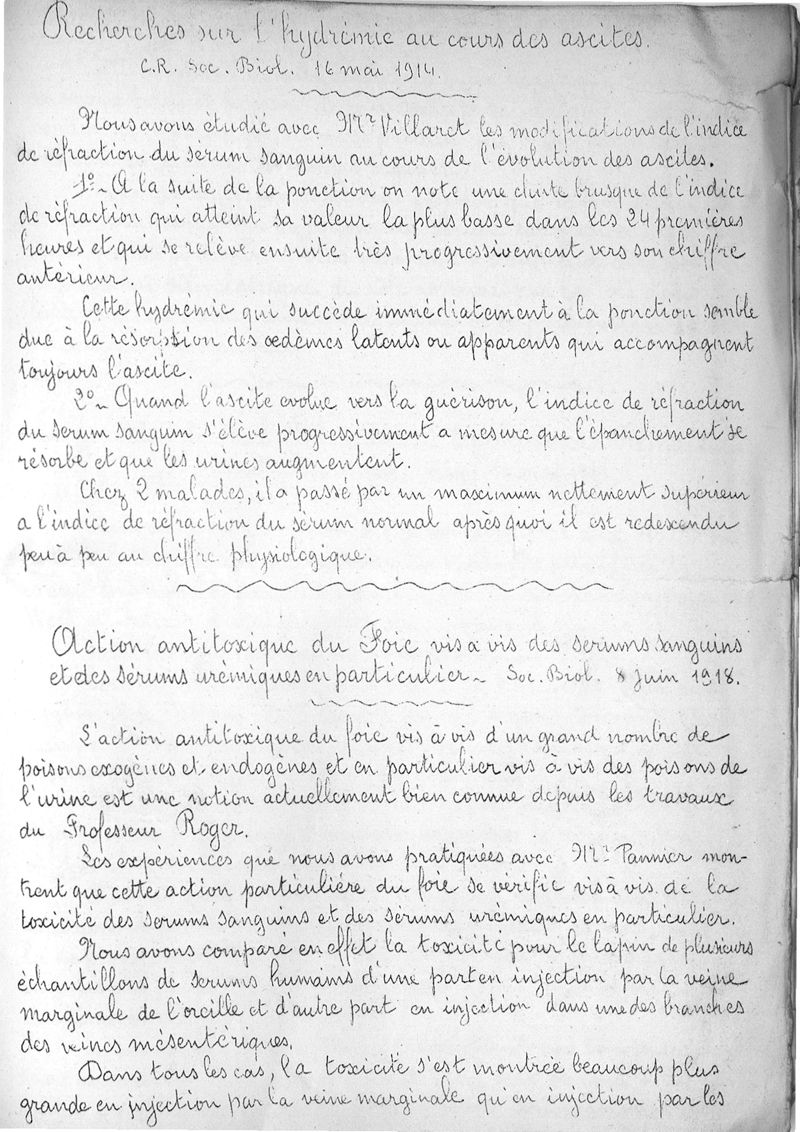 Recherches sur l'hydrémie au cours des ascites.
C.R. Soc. Biol. 16 mai 1914.
Nous avons étudié avec Mr Villaret les modifications de l'indice
de réfraction du sérum sanguin au cours de l'évolution des ascites.
1º- A la suite de la ponction on note une chute brusque de l'indice
de réfraction qui atteint sa valeur la plus basse dans les 24 premières
heures et qui se relève ensuite très progressivement vers son chiffre
antérieur.
Cette hydrémie qui succède immédiatement à la ponction semble
due à la résorption des œdèmes latents ou apparents qui accompagnent
toujours l'ascite.
2º- Quand l'ascite evolue vers la guérison, l'indice de réfraction
du serum sanguin s'élève progressivement a mesure que l'épanchement se
résorbe et que les urines augmentent.
Chez 2 malades, il a passé par un maximum nettement supérieur
a l'indice de réfraction du sérum normal après quoi il est redescendu
peu à peu au chiffre physiologique.
Action antitoxique du Foie vis a vis des serums sanguins
et des sérums urémiques en particulier- Soc. Biol. 8 Juin 1918.
L'action antitoxique du foie vis à vis d'un grand nombre de
poisons exogènes et endogènes et en particulier vis à vis des poisons de
l'urine est une notion actuellement bien connue depuis les travaux
du Professeur Roger.
Les expériences que nous avons pratiquées avec Mr Pannier mon-
trent que cette action particulière du foie se vérifie vis à vis de la
toxicité des serums sanguins et des sérums urémiques en particulier.
Nous avons comparé en effet la toxicité pour le lapin de plusieurs
échantillons de serums humains d'une part en injection par la veine
marginale de l'oreille et d'autre part en injection dans une des branches
des veines mésentériques.
Dans tous les cas, la toxicité s'est montrée beaucoup plus
grande en injection par la veine marginale qu'en injection par les